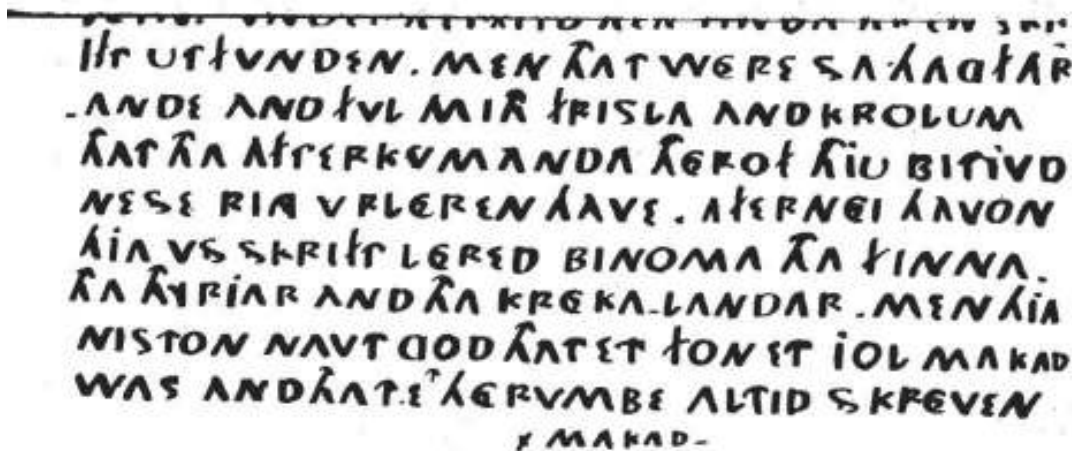 IFT UTFVNDEN. MEN THAT WERE SA HAGFAR
-ANDE AND FVL MITH FRISLA AND KROLUM
THAT THA AFTERKVMANDA THEROF THIU BITIVD
NESE RING VRLEREN HAVE. AFTERNEI HAVON
HIA VS SKRIFT LERED BINOMA THA FINNA.
THA THYRIAR AND THA KREKA-LANDAR. MEN HIA
NISTON NAVT GOD THAT ET FON ET IOL MAKAD
WAS AND THAT.ET HERVMBE ALTID SKREVEN
x MAKAD-